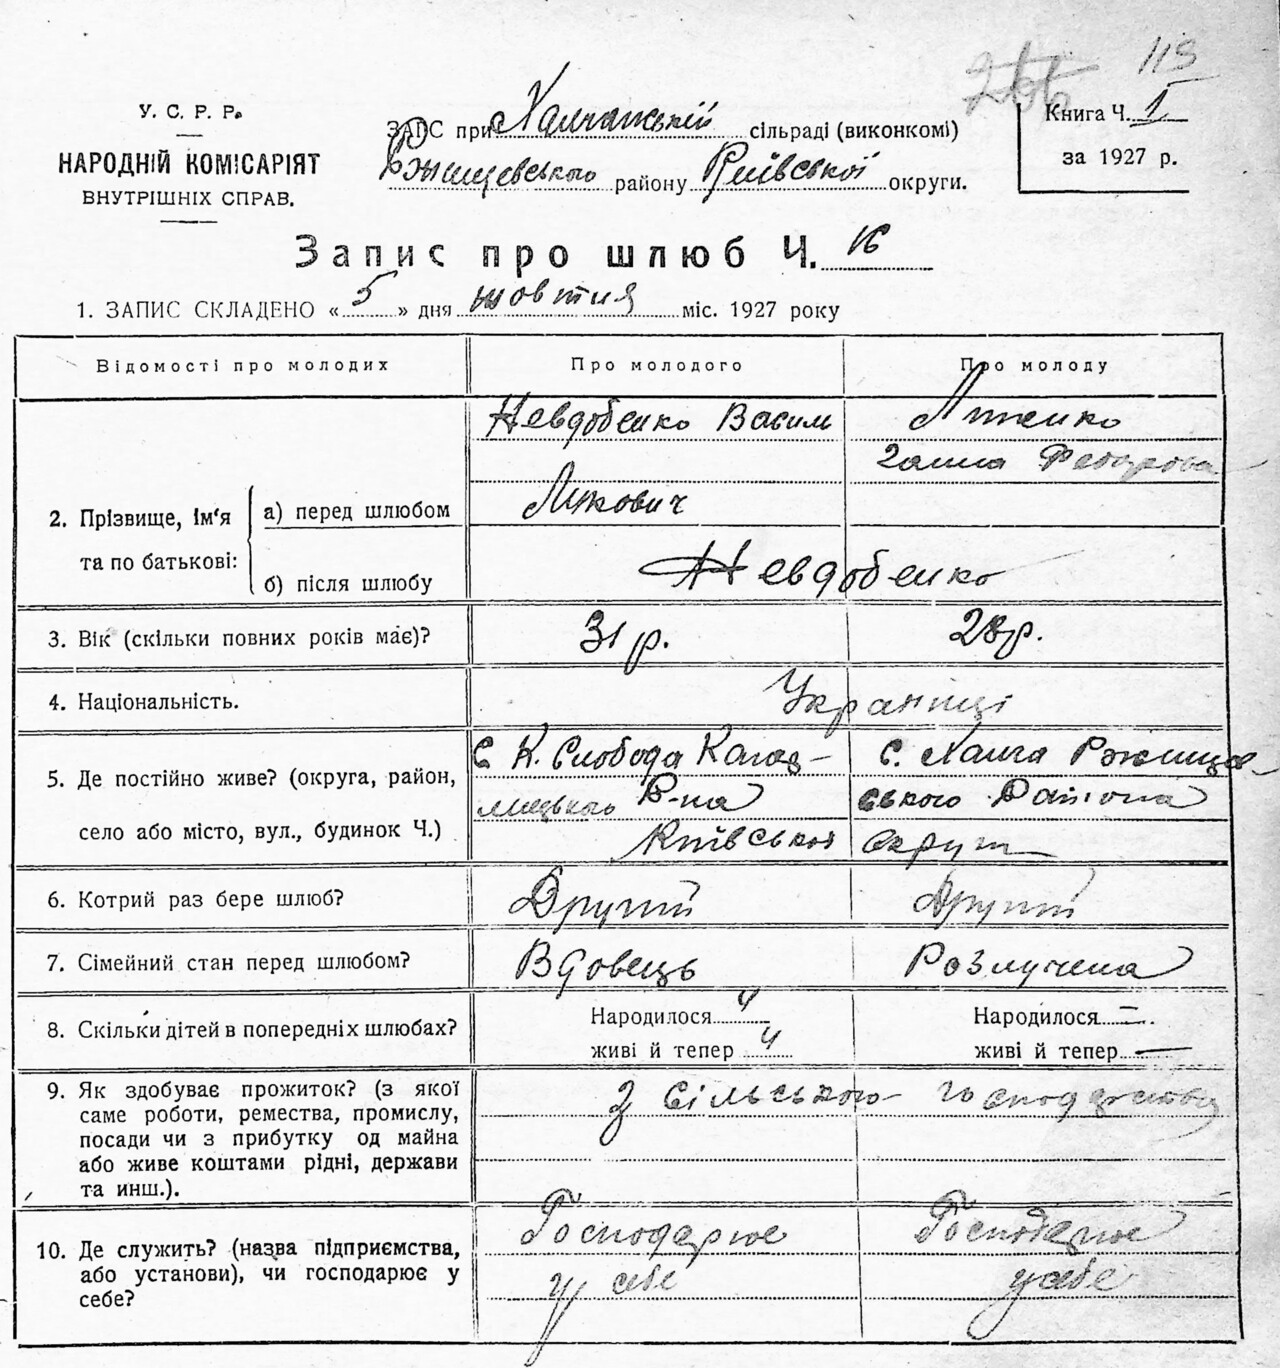 266 113
У. С. Р. Р.
НАРОДНІЙ КОМІСАРІЯТ
ВНУТРІШНІХ СПРАВ.
ЗАПС при Халчанській сільраді (виконкомі)
Ржищевського району Київської округи.
Книга Ч. 1
за 1927 р.
Запис про шлюб Ч. 16
1. ЗАПИС СКЛАДЕНО «5» дня жовтня міс. 1927 року
Відомості про молодих Про молодого Про молоду
2. Прізвище, ім'я та по батькові:
а) перед шлюбом
Невдобенко Василь
Лукович
Галина Федорова
б) після шлюбу
Невдобенко
3. Вік (скільки повних років має)? 31 р. 28 р.
4. Національність. Українці
5. Де постійно живе? (округа, район,
село або місто, вул., будинок Ч.)
С К. Слобода Кагар-
лицького Р-на
Київської округи
с. Халча Ржищев-
ського Района
6. Котрий раз бере шлюб? Другий Другий
7. Сімейний стан перед шлюбом? Вдовець Розлучена
8. Скільки дітей в попередніх шлюбах?
Народилося 4
живі й тепер 4
Народилося —
живі й тепер —
9. Як здобуває прожиток? (з якої
саме роботи, ремества, промислу,
посади чи з прибутку од майна
або живе коштами рідні, держави
та инш.).
З сільського господарства
10. Де служить? (назва підприємства,
або установи), чи господарює у
себе?
Господарює
у себе
Господарює
у себе